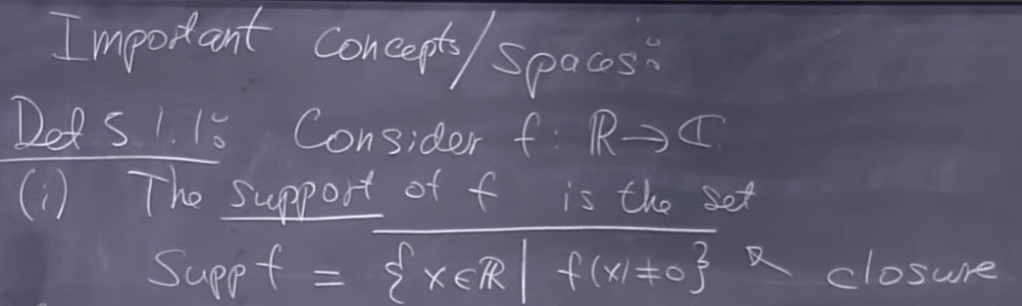 Important Concepts/Spaces:
Def 5.1.1: Consider f: ℝ→ℂ
(i) The support of f is the set
Supp f = {x∈ℝ | f(x)≠0} ↖ closure